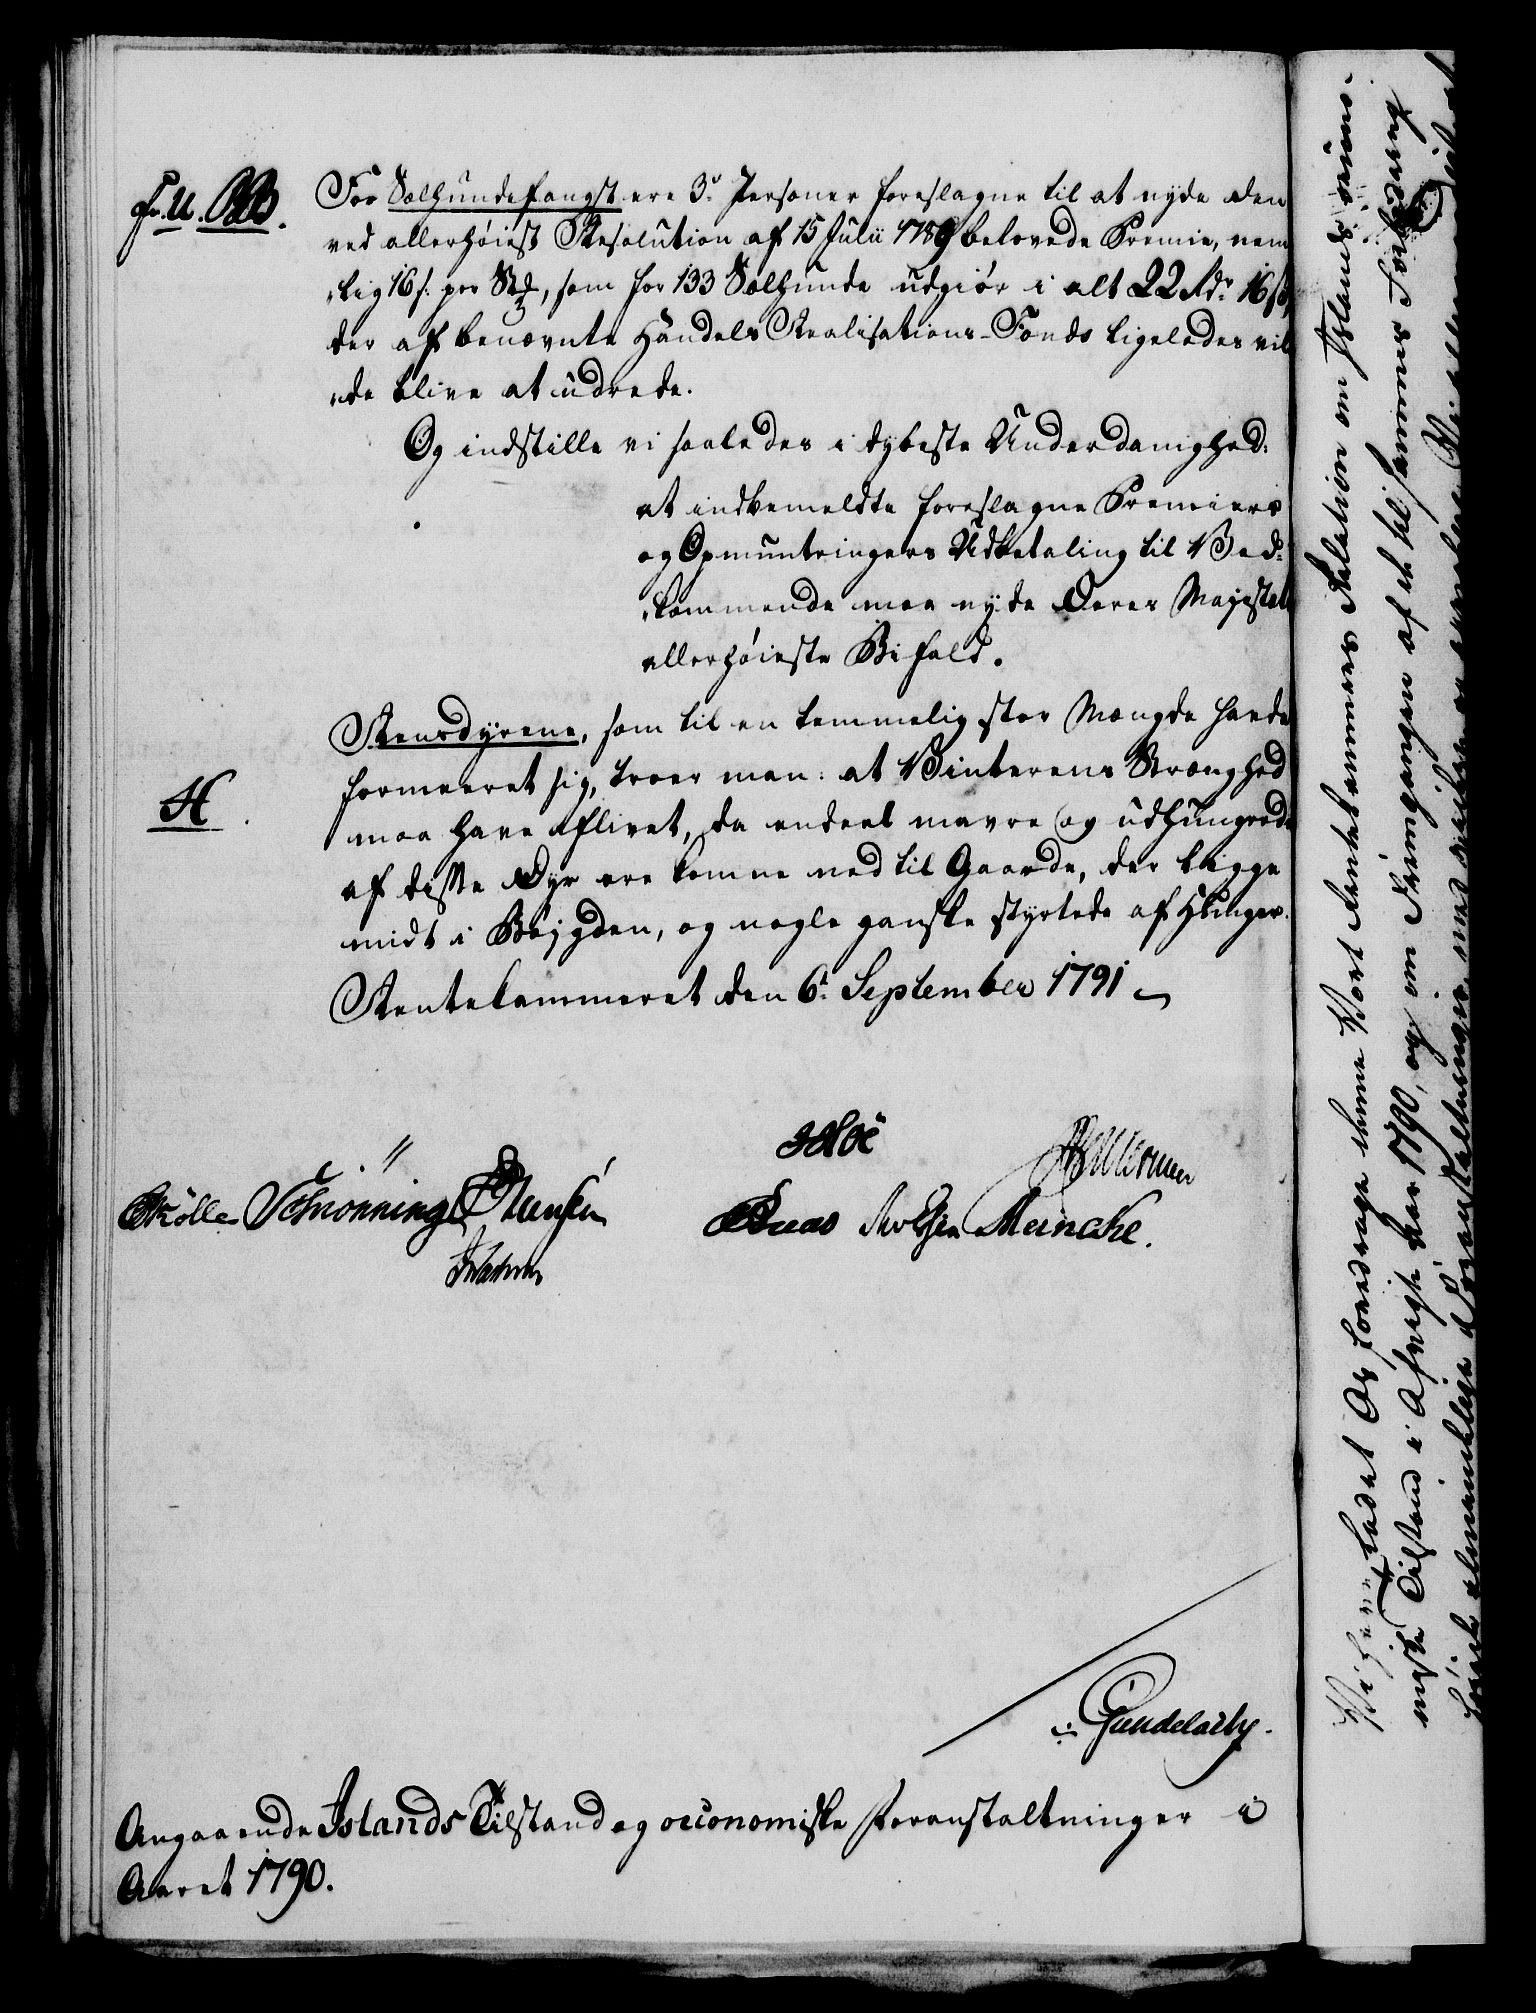 fr. U. BB.
For Sælhundefangst ere 3de Personer foreslagne til at nyde den
ved allerhöiest Resolution af 15 Julii 1789 belovede Præmie, nem
„lig 16 s. per Stk, som for 133 Sælhunde udgiör i alt 22 Rdr 16 s,
der af benævnte Handels Realisations-Fonds ligeledes vil
„de blive at udrede.
Og indstille vi saaledes i dybeste Underdanighed:
at indbemeldte foreslagne Præmiers
og Opmuntringers Udbetaling til Ved-
„kommende maa nyde Deres Majestæts
allerhöieste Bifald.
H
Rensdyrene, som til en temmelig stor Mængde havde
formeeret sig, troer man: at Vinterens Strænghed
maa have aflivet, da endeel mavre og udhungrede
af disse Dyr ere komne ned til Gaarde, der ligge
midt i Böigden, og nogle ganske styrtede af Hunger.
Rentekammeret den 6t September 1791
Schrönning
Meincke.
Gundelachy.
Angaaende Islands Tilstand og oeconomiske Foranstaltninger i
Aaret 1790.
Vi have ladet Os foredrage denne Vort Rentekammers Relation om Islands oecono-
miske Tilstand i Afvigte Aar 1790, og om Fremgangen af de til sammes